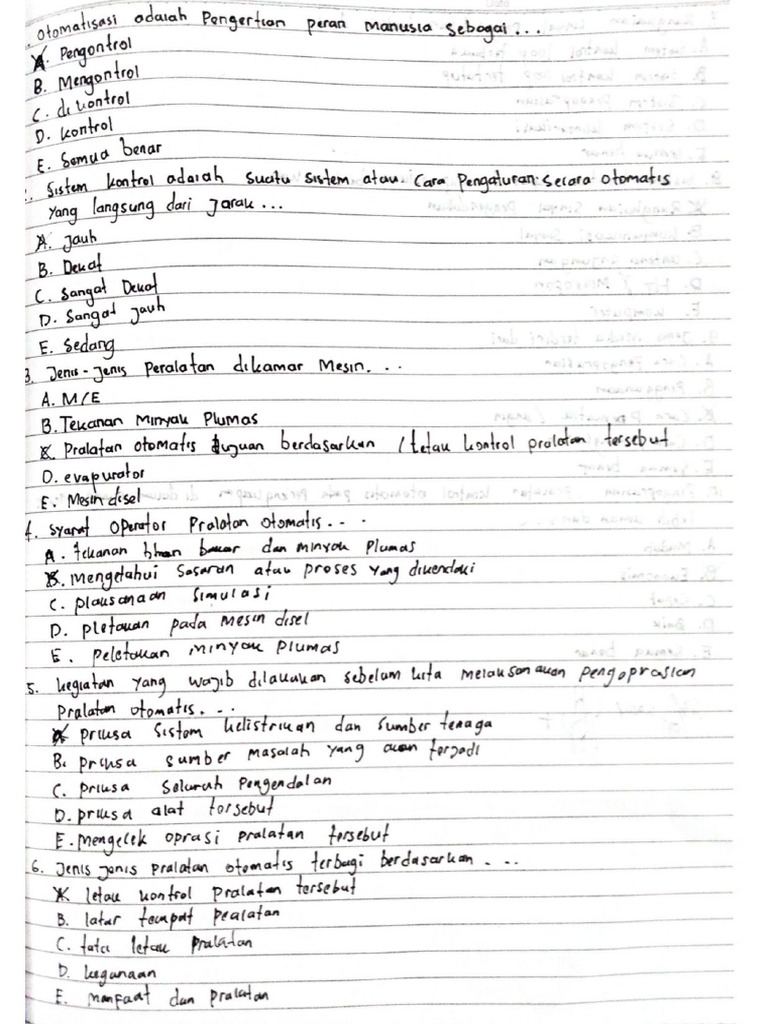 . Otomatisasi adalah Pengertian peran manusia sebagai...
A. Pengontrol
B. Mengontrol
C. di kontrol
D. kontrol
E. Semua benar
. Sistem kontrol adalah suatu sistem atau Cara Pengaturan secara otomatis
yang langsung dari jarak...
A. jauh
B. Dekat
C. Sangat Dekat
D. Sangat jauh
E. Sedang
3. Jenis-jenis Peralatan dikamar Mesin...
A. M/E
B. Tekanan Minyak Plumas
C. Pralatan otomatis tujuan berdasarkan / letak kontrol pralatan tersebut
D. evapurator
E. Mesin disel
4. Syarat Operator Pralatan otomatis...
A. tekanan bhan bakar dan minyak Plumas
B. Mengetahui Sasaran atau proses yang dikendaki
C. plaksanaan simulasi
D. pletakan pada Mesin disel
E. Peletakan minyak Plumas
5. kegiatan yang wajib dilakukan sebelum kita melaksanakan pengoprasian
Pralatan otomatis...
A. priksa sistem kelistrikan dan sumber tenaga
B. priksa sumber masalah yang akan terjadi
C. priksa seluruh Pengendalan
D. priksa alat torsebut
E. mengecek oprasi pralatan tersebut
6. Jenis jenis pralatan otomatis terbagi berdasarkan...
A. letak kontrol pralatan tersebut
B. latar tempat pealatan
C. tata letak pralatan
D. kegunaan
E. manfaat dan pralatan